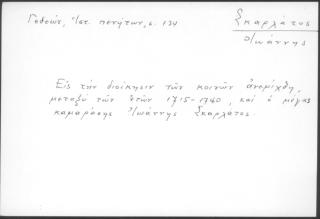 Γεδεών, Ἱστ. πενήτων, σ. 134
Σκαρλάτος
Ἰωάννης
Εἰς τὴν διοίκησιν τῶν κοινῶν ἀνεμίχθη,
μεταξὺ τῶν ἐτῶν 1715-1740, καὶ ὁ μέγας
καμαράσης Ἰωάννης Σκαρλάτος.